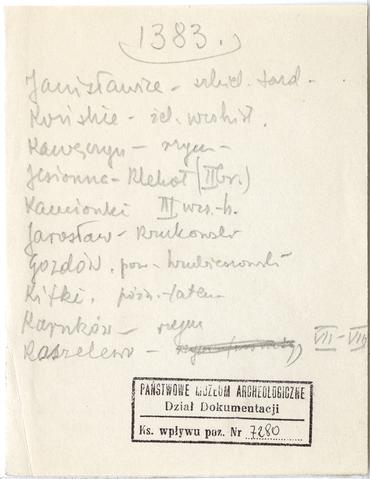 1383.
Janisławice – szkiel. tard.
Końskie – śl. wczhist.
Kawęczyn – rzym –
Jesionna – Klekot (II Br.)
Kamionki III wcz.-h.
Jarosław – Krukowski
Gozdów, pow. hrubieszowski
Kitki, późn.-laten
Karnków – rzym
Kaszelewo – VII – VIII
PAŃSTWOWE MUZEUM ARCHEOLOGICZNE
Dział Dokumentacji
Ks. wpływu poz. Nr 7280